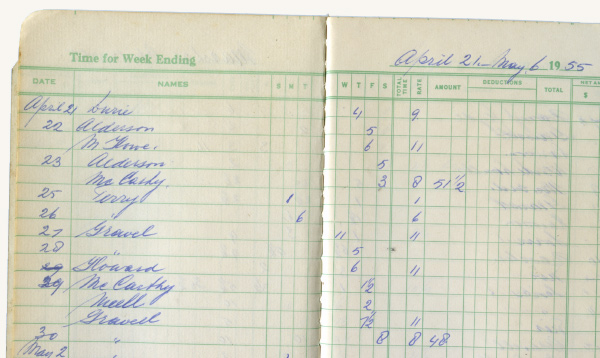 Time for Week Ending April 21 - May 6 1955
DATE NAMES S M T W T F S TOTAL TIME RATE AMOUNT DEDUCTIONS TOTAL NET
$
April 21 4 9
22 Alderson 5
M 6 11
23 Alderson 5
McCarthy. 3 8 51 1/2
25 Terry 1 1
26 " 6 6
27 Gravel 11 11
28 " 5
Howard 6 11
29 McCarthy 1 1/2
2
Gravel 7 1/2 11
30 " 8 8 48
May 2 "